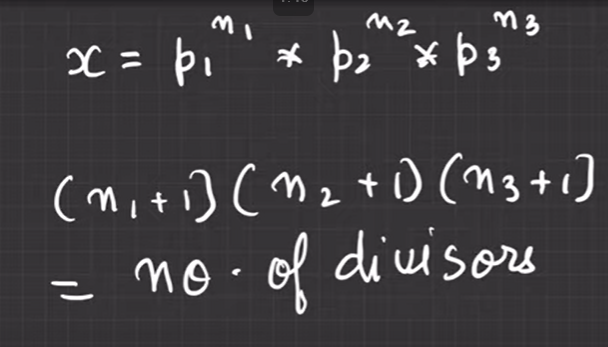 x = p₁^n₁ * p₂^n₂ * p₃^n₃
(n₁+1)(n₂+1)(n₃+1)
= no. of divisors